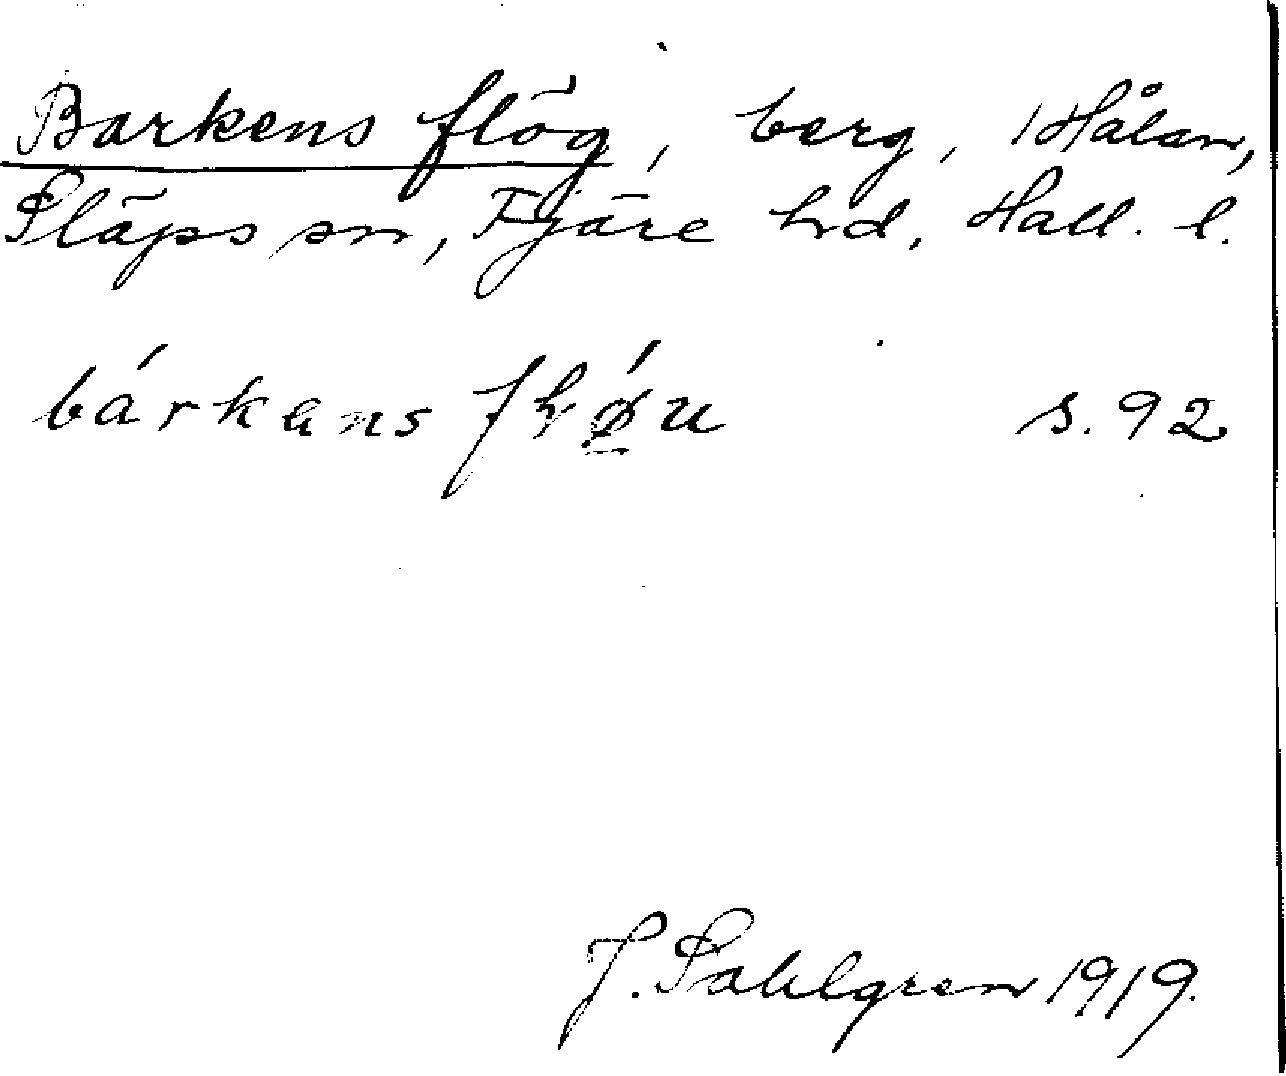 Barkens flög, berg, Hålan,
Släps sn, Fjäre hd, Hall. l.
bárkens s. 92
J. Sahlgren 1919.